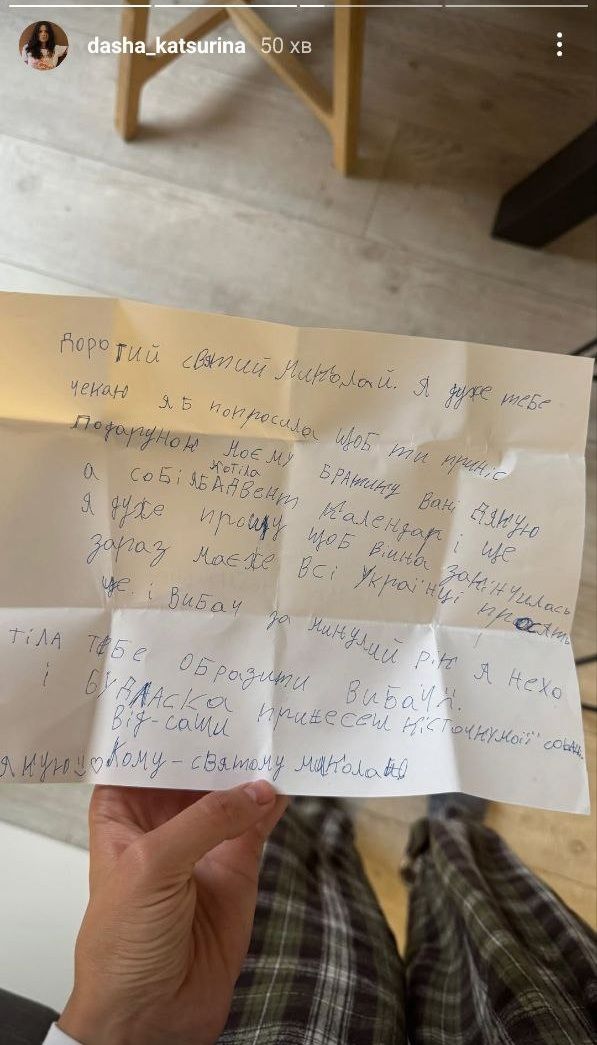 dasha_katsurina 50 хв
Дорогий святий Миколай. Я дуже тебе
чекаю я б попросила щоб ти приніс
Подаруною моєму братику Вані Дякую
хотіла
а собі яб Адвент календар і ще
я дуже прошу щоб війна закінчилась
зараз маєже всі Українці просять
це. і Вибач за минулий рік я нехо
тіла тебе образити Вибачч.
і БУДЛаска принесеш кісточку моїй
Від-Саши
якую!! Кому-святому миколаю